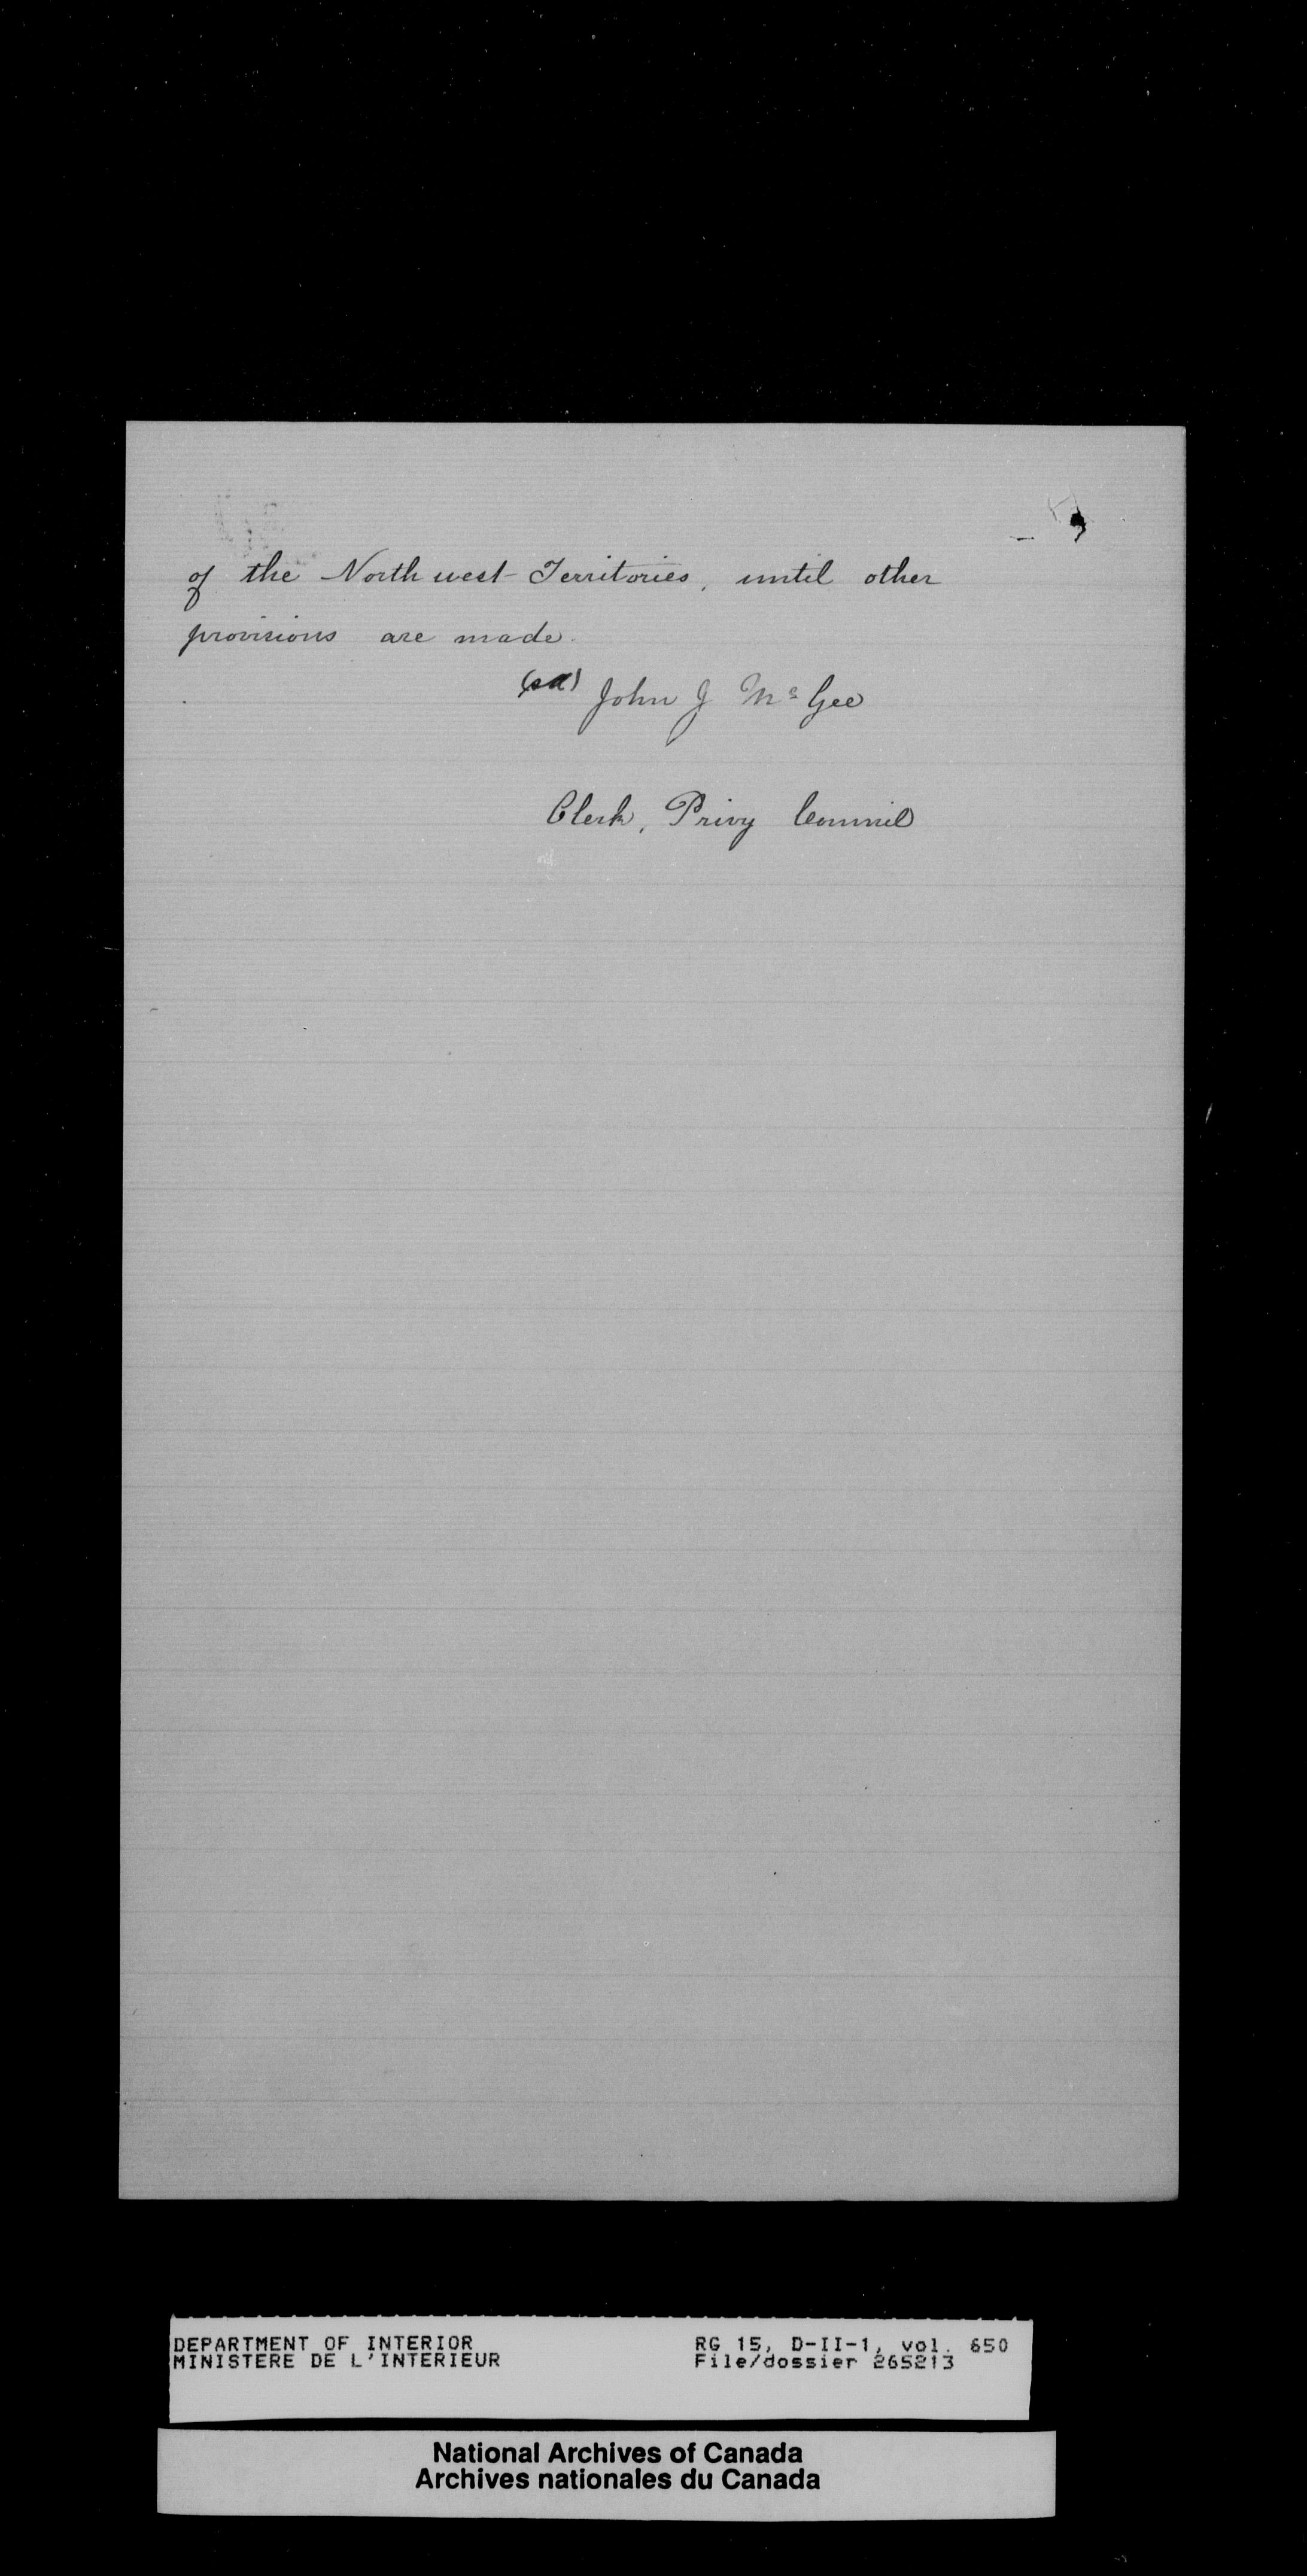 of the North west Territories, until other
provisions are made.
(sd) John J McGee
Clerk, Privy Council
DEPARTMENT OF INTERIOR
MINISTERE DE L'INTERIEUR
RG 15, D-II-1, vol. 650
File/dossier 265213
National Archives of Canada
Archives nationales du Canada